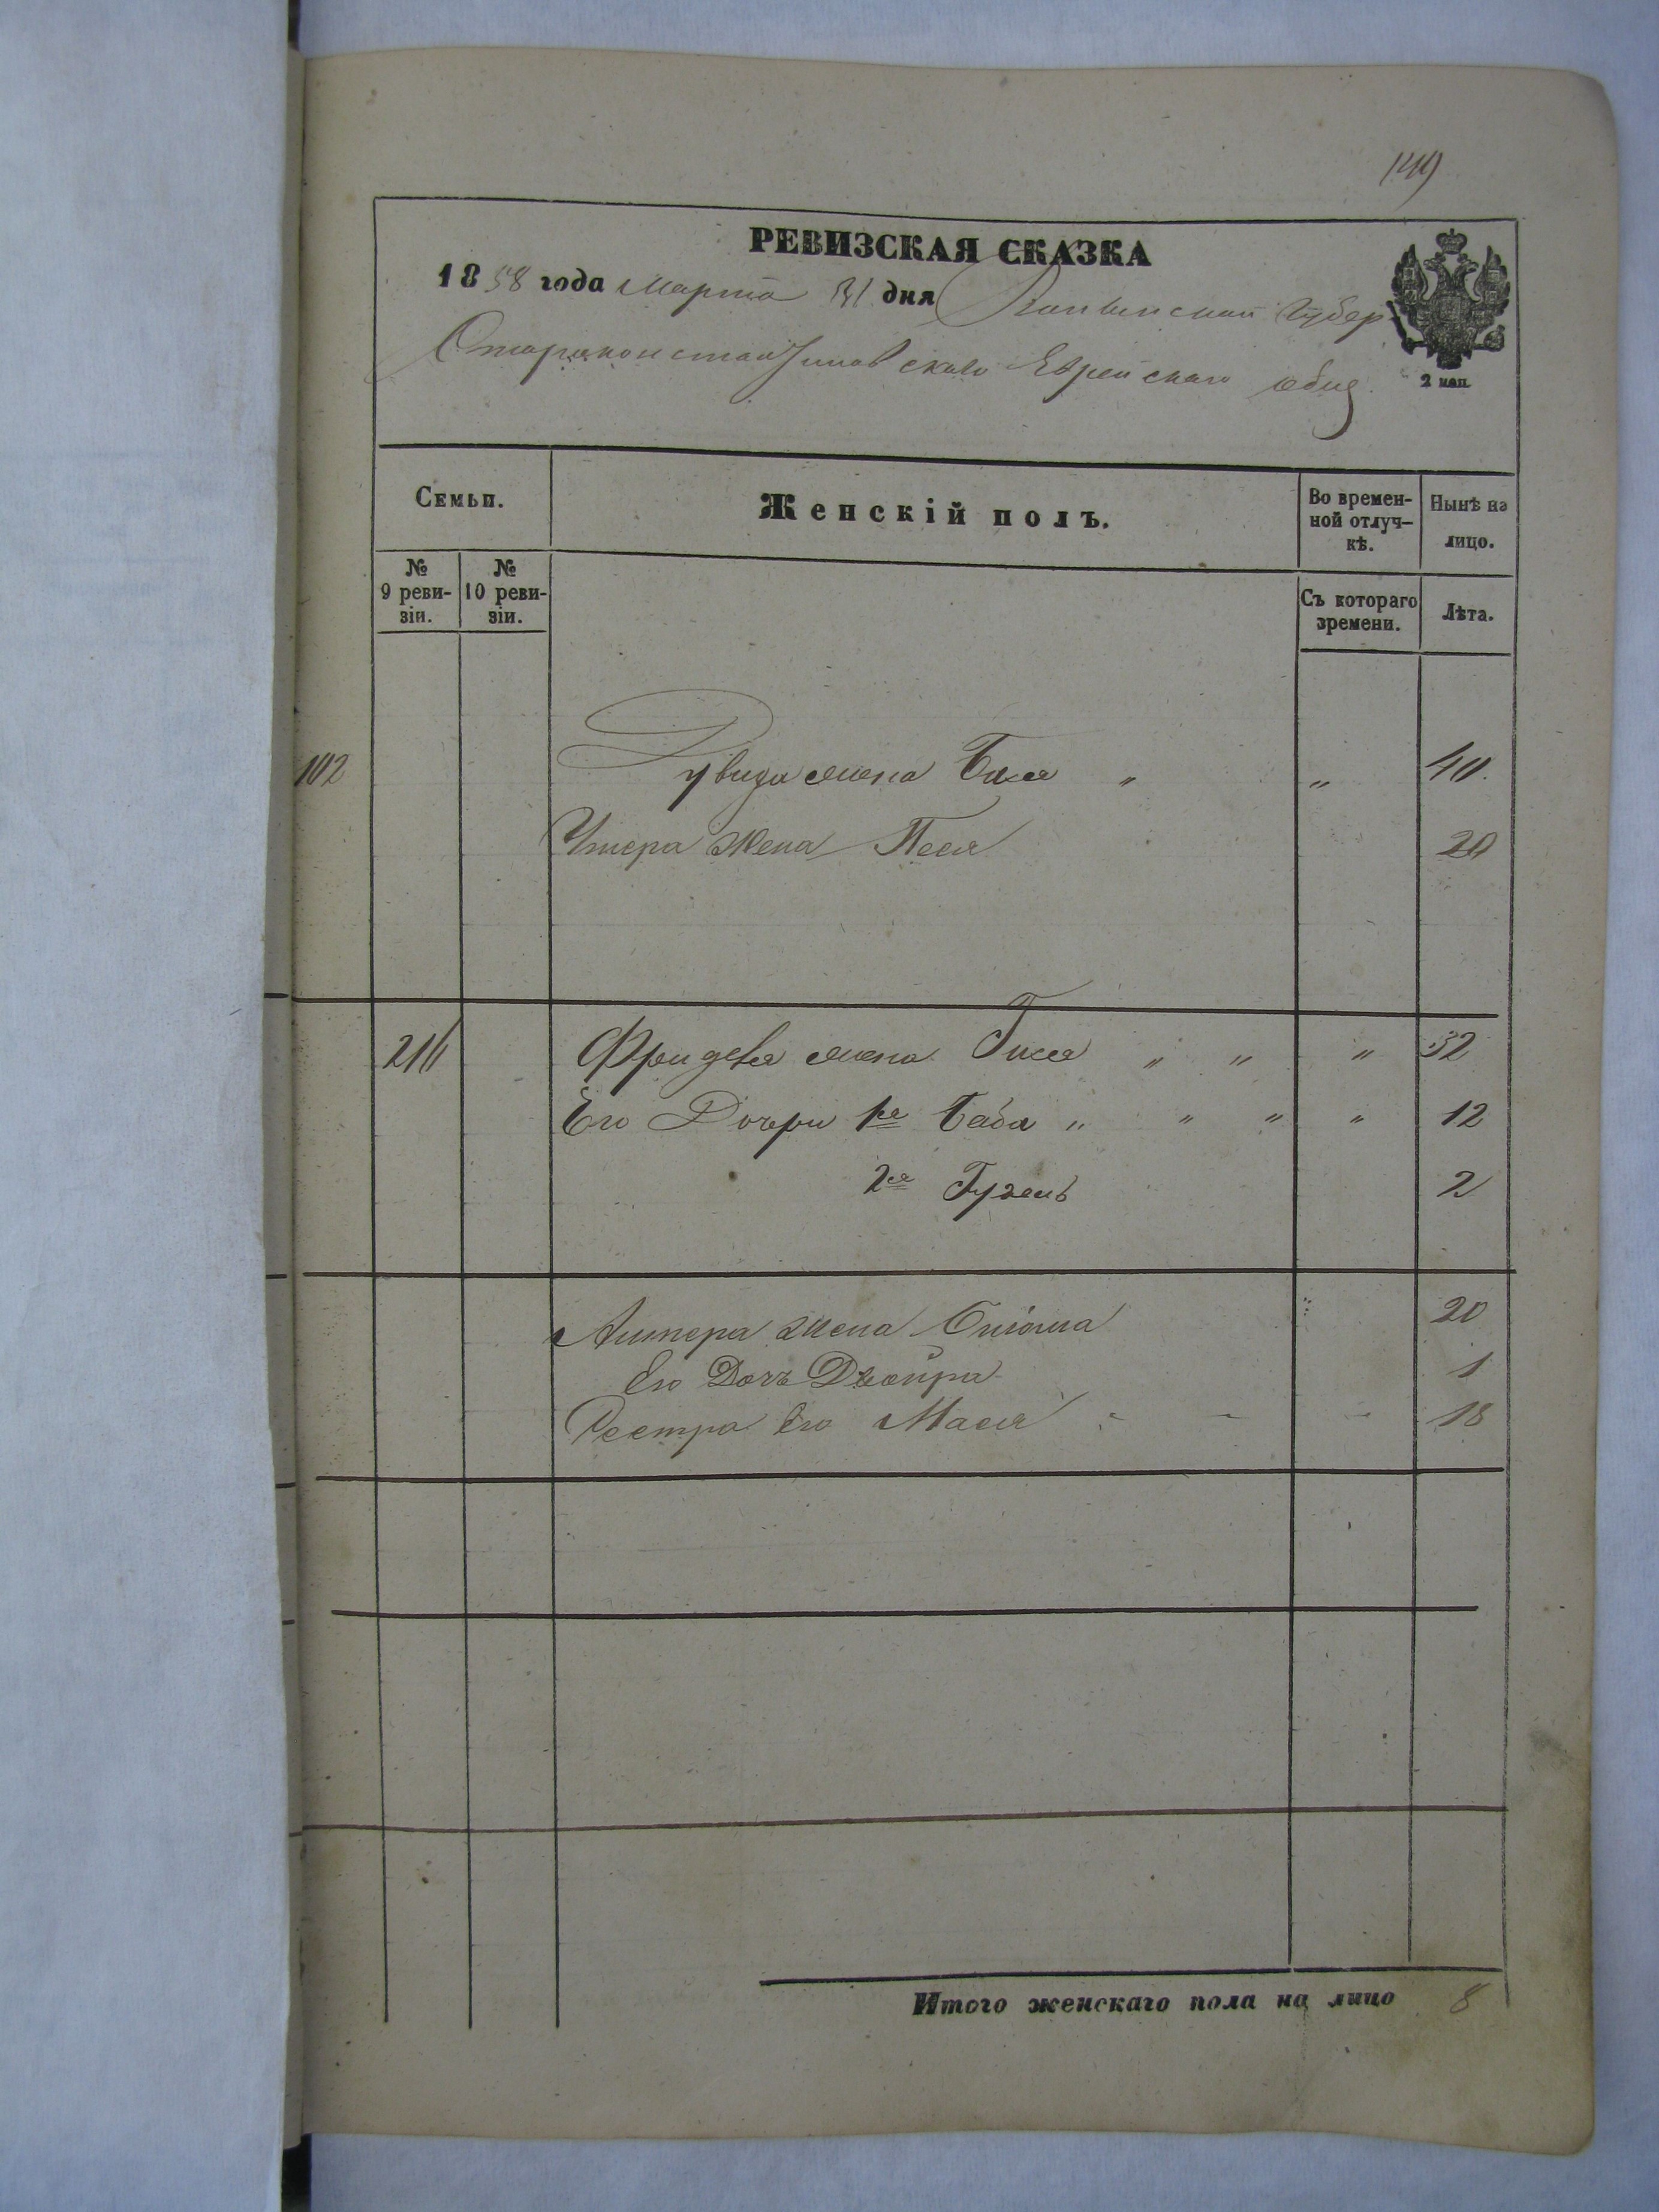 149
РЕВИЗСКАЯ СКАЗКА
1858 года Марта 31 дня Волынской Губер
Староконстантиновскаго Еврейскаго общ
2 коп.
Семьи.
Женскій полъ.
Во времен-
ной отлуч-
кѣ.
Нынѣ на
лицо.
№
9 реви-
зіи.
№
10 реви-
зіи.
Съ котораго
времени.
Лѣта.
102 жена Бася " " 40.
жена Песя 20
216 Фриделя жена Гися " " " 32
Его Дочери 1я Баба " " " " 12
2я 2
жена 20
Его Дочь Двойра 1
Сестра Его Мася 18
Итого женскаго пола на лицо 8